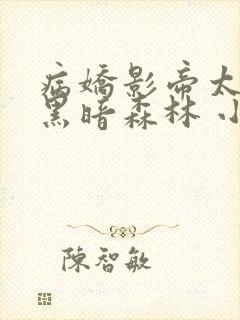 病嬌影帝太
黑暗森林 小
陳智敏